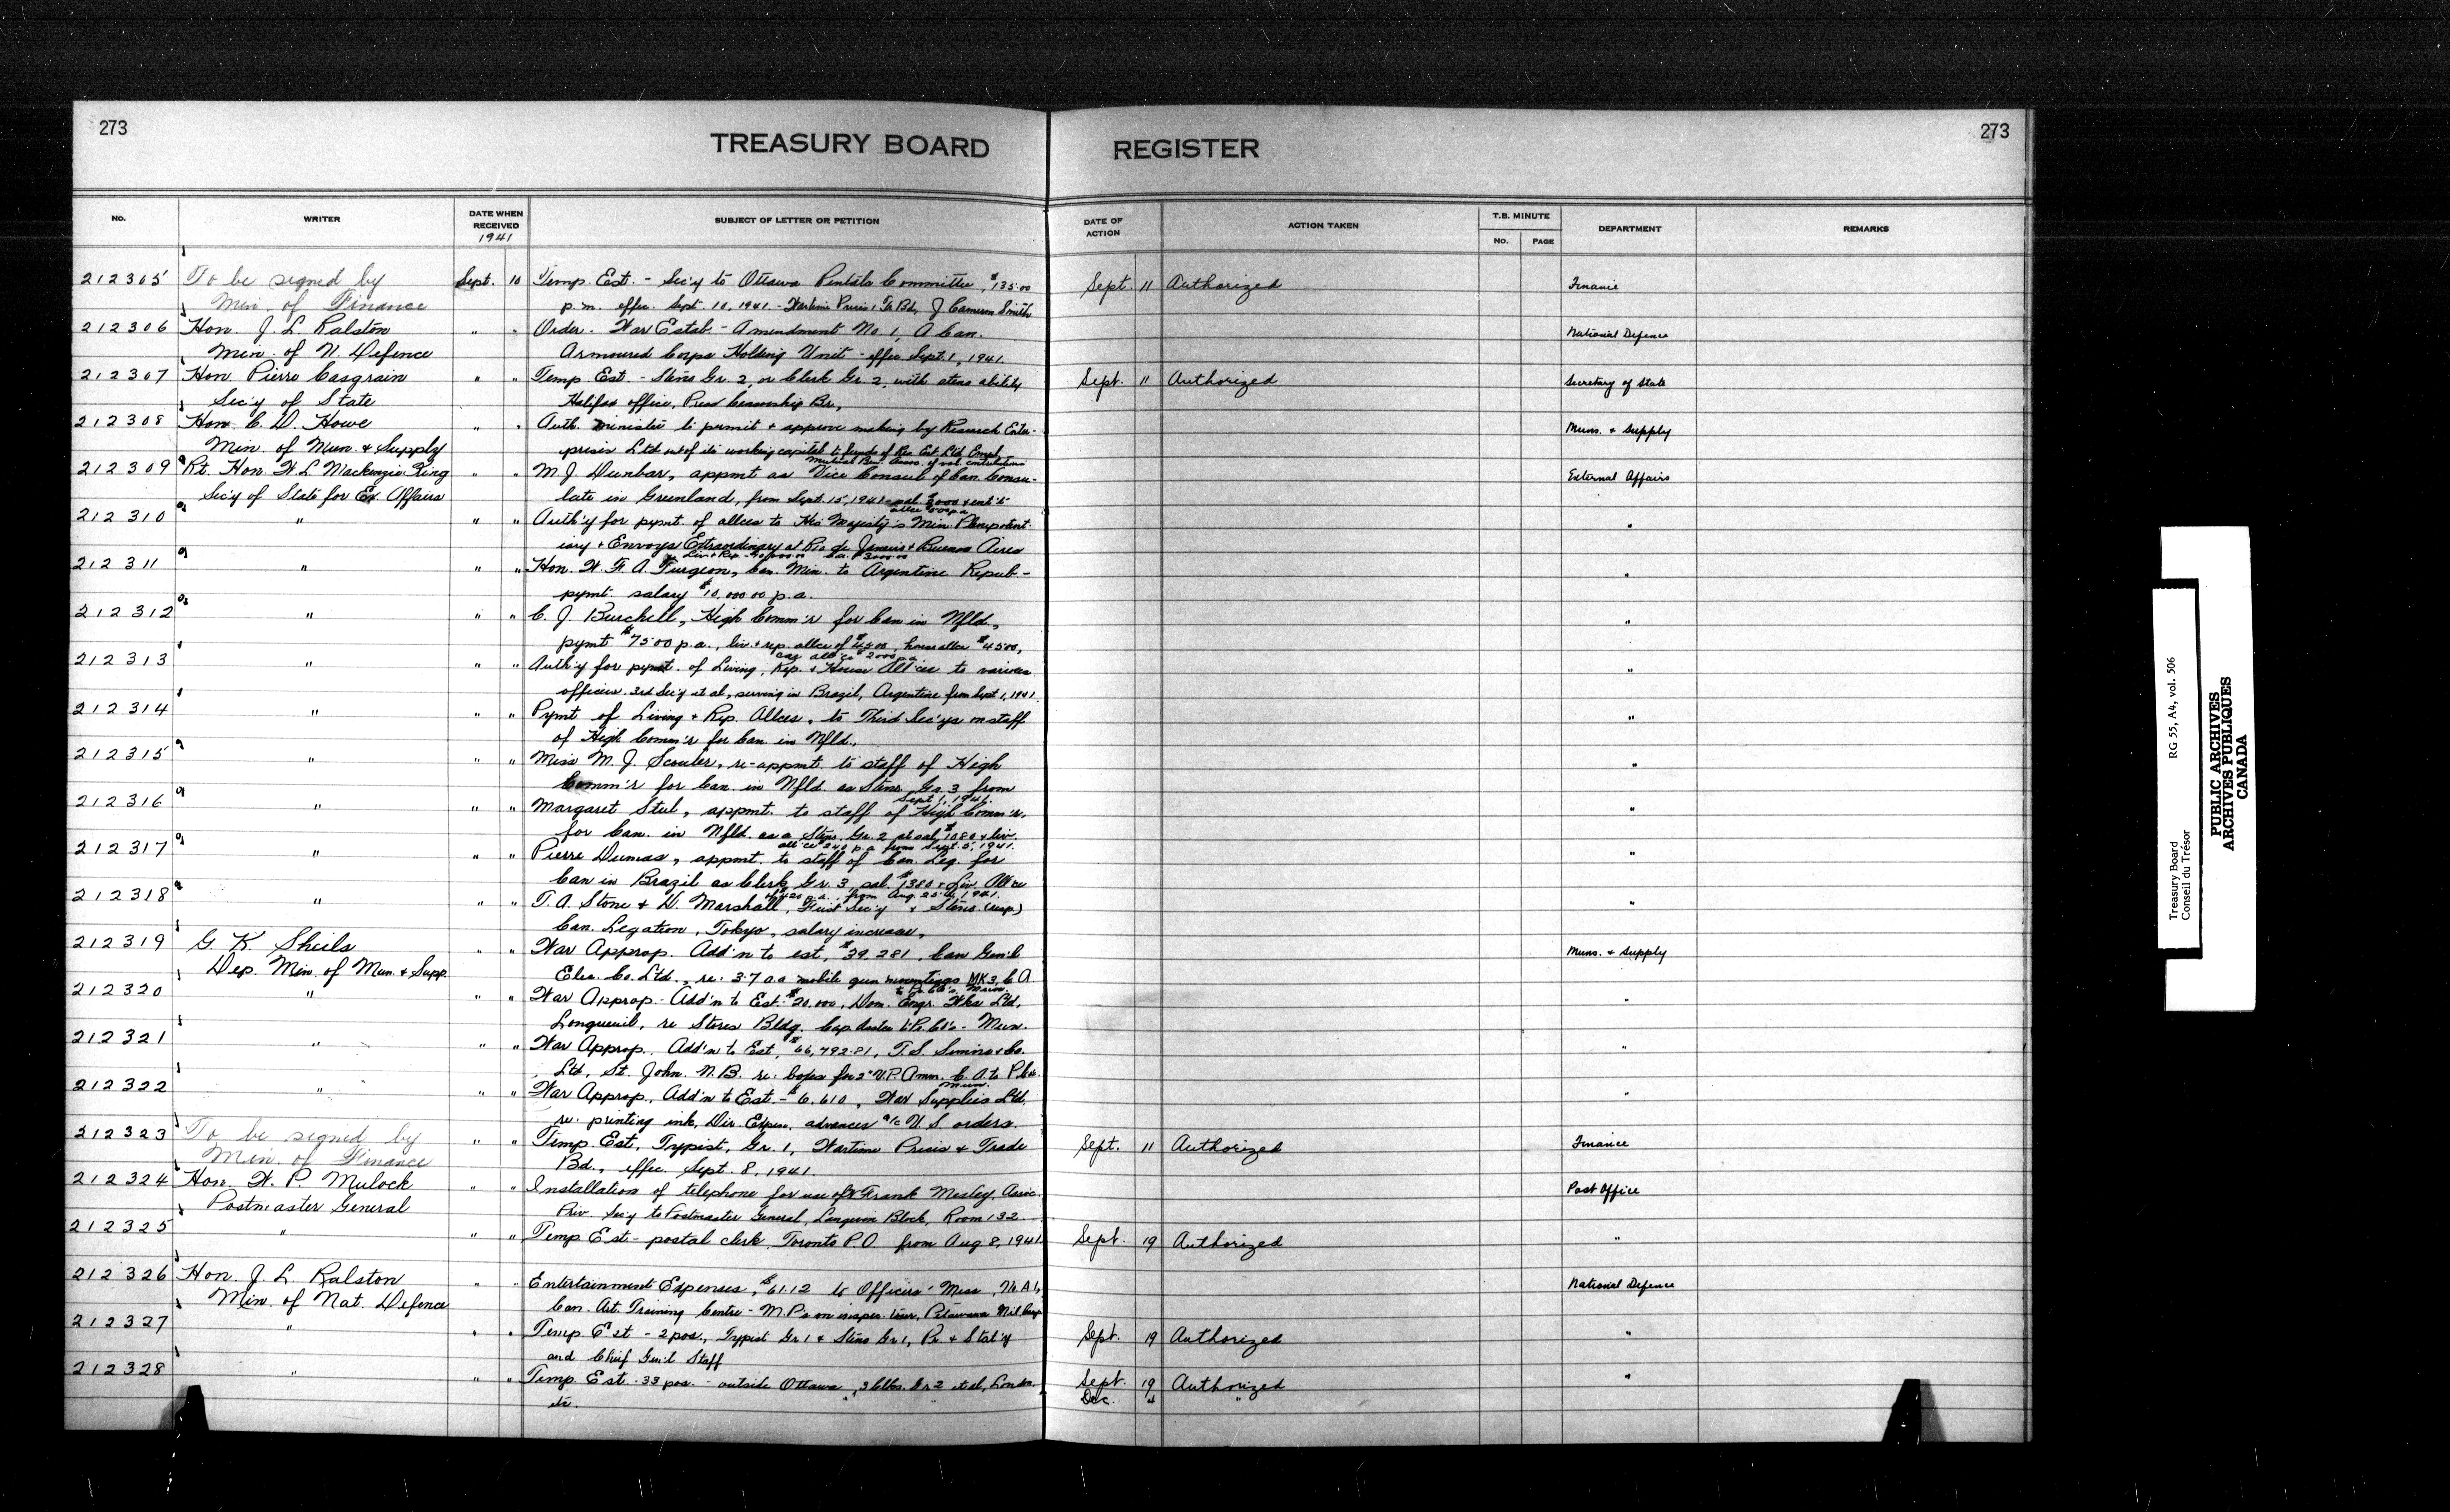 273
TREASURY BOARD REGISTER
273
No. WRITER DATE WHEN RECEIVED 1941 SUBJECT OF LETTER OR PETITION DATE OF ACTION ACTION TAKEN T.B. MINUTE No. PAGE DEPARTMENT REMARKS
212305 To be signed by Sept. 10 Temp. Est. - Sec'y to Ottawa Rentals Committee, $135.00 Sept. 11 Authorized Finance
Min. of Finance p.m. effec. Sept. 10, 1941 - Wartime Prices & Tr. Bd, J Cameron Smith
212306 Hon. J. L. Ralston " " Order - War Estab. - Amendment No. 1, A Can. National Defence
Min. of N. Defence Armoured Corps Holding Unit - effec Sept. 1, 1941.
212307 Hon. Pierre Casgrain " " Temp. Est. - Steno Gr. 2, or Clerk Gr. 2, with steno ability Sept. 11 Authorized Secretary of State
Sec'y of State Halifax office, Press Censorship Br.,
212308 Hon. C. D. Howe " " Auth. minister to permit & approve making by Research Enter- Muns. & Supply
Min. of Mun. & Supply prises Ltd out of its working capital to funds of Res. Ent. Ltd. Empl.
Mutual Ben. Assoc. of vol. contributions
212309 Rt. Hon. W. L. Mackenzie King " " M. J. Dunbar, appmt as Vice Consul of Can. Consu- External Affairs
Sec'y of State for Ex. Affairs late in Greenland, from Sept. 15, 1941 - sal.
212310 " " " Auth'y for pymt. of allces to His Majesty's Min. Plenipotent- "
iary & Envoys Extraordinary at Rio de Janeiro & Buenos Aires
212311 " " " Hon. W. F. A. Turgeon, Can. Min. to Argentine Repub- "
pymt. salary $10,000.00 p.a.
212312 " " " C. J. Burchell, High Comm'r for Can in Nfld., "
pymt $7500 p.a., liv. & rep. allce of house allce $4500,
car all'ce $2000 p.a.
212313 " " " Auth'y for pymt. of Living, Rep. & House All'ces to various "
officers. 3rd Sec'y et al, serving in Brazil, Argentine from Sept 1, 1941
212314 " " " Pymt of Living & Rep. Allces, to Third Sec'ys on staff "
of High Comm'r for Can. in Nfld.,
212315 " " " Miss M. J. Scouler, re-appmt. to staff of High "
Comm'r for Can. in Nfld. as Steno Gr. 3 from
Sept 1, 1941.
212316 " " " Margaret Stul, appmt. to staff of High Comm'r. "
for Can. in Nfld. as a Steno. Gr. 2 at sal. $1080 & liv.
all'ce $240 p.a. from Sept. 5, 1941.
212317 " " " Pierre Dumas, appmt. to staff of Can. Leg. for "
Can in Brazil as Clerk Gr. 3, sal. $1380 & Liv. All'ce
p.a., from Aug. 25th, 1941.
212318 " " " T. A. Stone & D. Marshall, First Sec'y & Steno. (resp.) "
Can. Legation, Tokyo, salary increase,
212319 G. K. Sheils " " War Approp. Add'n to est, $39,281, Can Gen'l Muns. & Supply
Dep. Min. of Mun. & Supp. Elec. Co. Ltd., re: 3.7 a.a. mobile gun mountings MK3, C.A.
to Pr. Co's. Muns.
212320 " " " War Approp. - Add'n to Est. - $20,000, Dom. Engr. Wks Ltd, "
Longueuil, re Stores Bldg. Cap. Assis. to Pr. Co's. - Mun.
212321 " " " War Approp. Add'n to Est, $66,792.81, T.S. Simms & Co. "
Ltd, St. John. N.B. re: for 2" U.P. Amm. C.A. to P. Co.
Mun.
212322 " " " War Approp. Add'n to Est. - $6,610, War Supplies Ltd. "
re: printing ink, Div. Expen. advances a/c U.S. orders.
212323 To be signed by " " Temp. Est., Typist, Gr. 1, Wartime Prices & Trade Sept. 11 Authorized Finance
Min. of Finance Bd., effec. Sept. 8, 1941.
212324 Hon. W. P. Mulock " " Installation of telephone for use of Frank Mesley, Assoc. Post Office
Postmaster General Priv. Sec'y to Postmaster General, Langevin Block, Room 132
212325 " " " Temp Est - postal clerk, Toronto P.O. from Aug 8, 1941 Sept. 19 Authorized "
212326 Hon. J. L. Ralston " " Entertainment Expenses, $61.12 to Officers' Mess, No A1, National Defence
Min. of Nat. Defence Can. Art. Training Centre - M.P.s on inspec. tour, Petawawa Mil. Camp
212327 " " " Temp Est - 2 pos., Typist Gr 1 & Steno Gr 1, Pr. & Stat'y Sept. 19 Authorized "
and Chief Gen'l Staff
212328 " " " Temp. Est. - 33 pos. - outside Ottawa, 3 Clks. Gr 2 et al, London, Sept. 19 Authorized "
etc. Dec. 4 "
Treasury Board RG 55, A4, vol. 506
Conseil du Trésor
PUBLIC ARCHIVES
ARCHIVES PUBLIQUES
CANADA